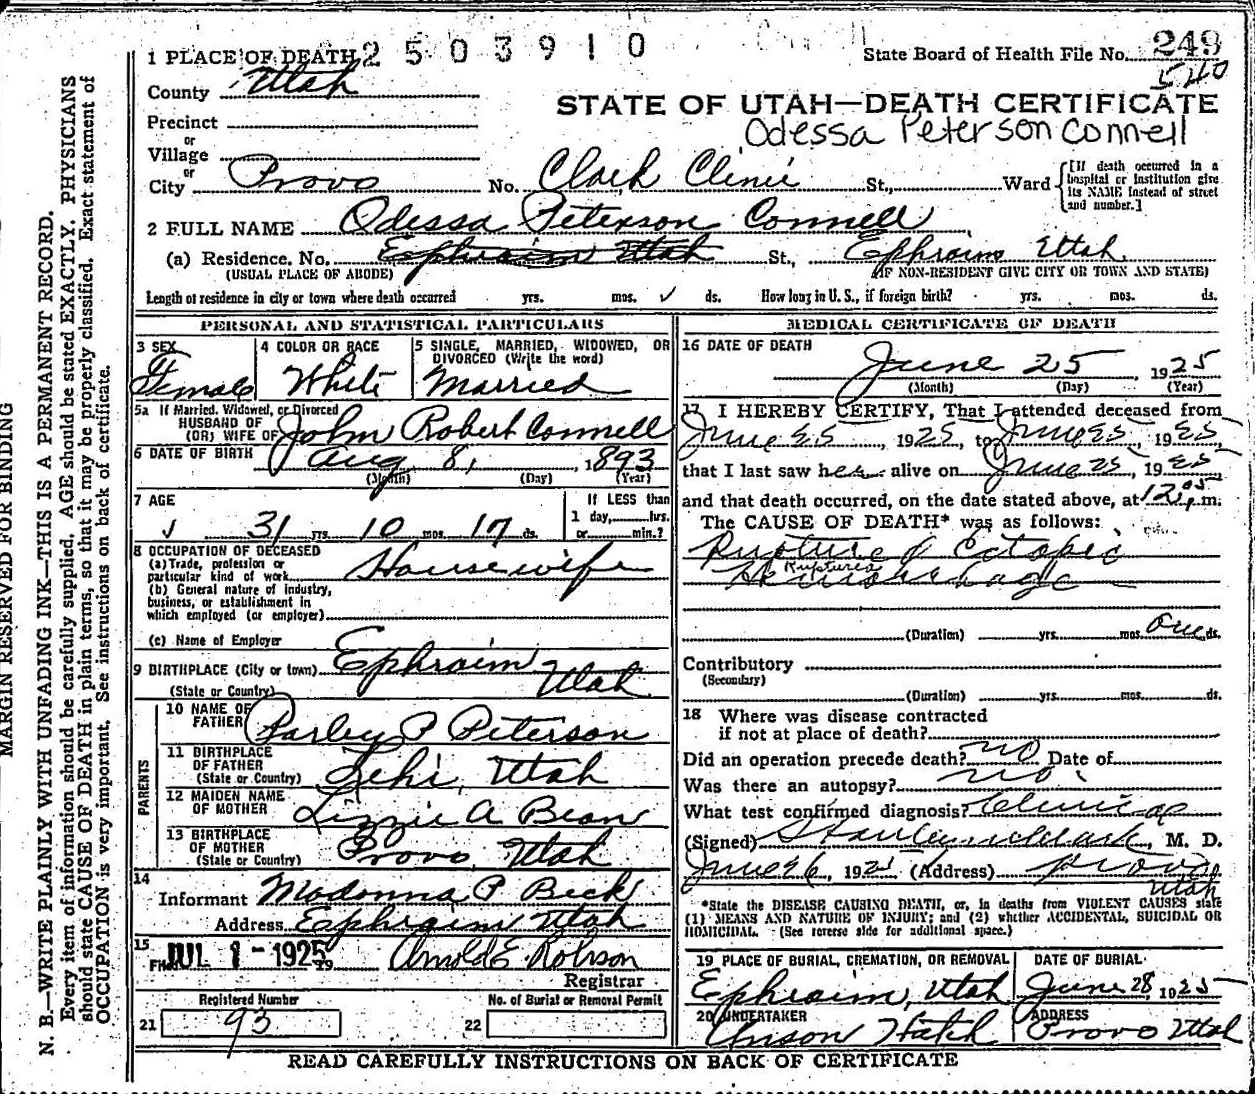 1 PLACE OF DEATH 2503910 State Board of Health File No. 249
540
County Utah
STATE OF UTAH—DEATH CERTIFICATE
Precinct
Odessa Peterson Connell
or
Village
or
City Provo No. Clark Clinic St., Ward
[If death occurred in a hospital or institution give its NAME instead of street and number.]
2 FULL NAME Odessa Peterson Connell
(a) Residence. No. Ephraim Utah St., Ephraim Utah
(USUAL PLACE OF ABODE) (IF NON-RESIDENT GIVE CITY OR TOWN AND STATE)
Length of residence in city or town where death occurred yrs. mos. ✓ ds. How long in U. S., if foreign birth? yrs. mos. ds.
PERSONAL AND STATISTICAL PARTICULARS
3 SEX 4 COLOR OR RACE 5 SINGLE, MARRIED, WIDOWED, OR
DIVORCED (Write the word)
Female White Married
5a If Married, Widowed, or Divorced
HUSBAND OF
(OR) WIFE OF John Robert Connell
6 DATE OF BIRTH Aug 8, 1893
(Month) (Day) (Year)
7 AGE If LESS than
✓ 31 yrs. 10 mos. 17 ds. 1 day, hrs.
or min.?
8 OCCUPATION OF DECEASED
(a) Trade, profession or
particular kind of work Housewife
(b) General nature of industry,
business, or establishment in
which employed (or employer)
(c) Name of Employer
9 BIRTHPLACE (City or town) Ephraim
(State or Country) Utah
PARENTS
10 NAME OF
FATHER Parley P Peterson
11 BIRTHPLACE
OF FATHER
(State or Country) Lehi, Utah
12 MAIDEN NAME
OF MOTHER Lizzie A Bean
13 BIRTHPLACE
OF MOTHER
(State or Country) Provo, Utah
14
Informant Madonna P Beck
Address Ephraim Utah
15
JUL 1 - 1925 Arnold E Robison
Registrar
Registered Number No. of Burial or Removal Permit
21 93 22
MEDICAL CERTIFICATE OF DEATH
16 DATE OF DEATH
June 25 1925
(Month) (Day) (Year)
17 I HEREBY CERTIFY, That I attended deceased from
June 25, 1925, to June 25, 1925
that I last saw her alive on June 25, 1925
and that death occurred, on the date stated above, at 12,05 p.m.
The CAUSE OF DEATH* was as follows:
Rupture of Ectopic
Ruptured
Hemorrhage
(Duration) yrs. mos. One ds.
Contributory
(Secondary)
(Duration) yrs. mos. ds.
18 Where was disease contracted
if not at place of death?
Did an operation precede death? no Date of
Was there an autopsy? no
What test confirmed diagnosis? Clinical
(Signed) Stanley M Clark, M. D.
June 26, 1925 (Address) Provo
Utah
*State the DISEASE CAUSING DEATH, or, in deaths from VIOLENT CAUSES state
(1) MEANS AND NATURE OF INJURY; and (2) whether ACCIDENTAL, SUICIDAL OR
HOMICIDAL. (See reverse side for additional space.)
19 PLACE OF BURIAL, CREMATION, OR REMOVAL DATE OF BURIAL
Ephraim, Utah June 28, 1925
20 UNDERTAKER ADDRESS
Anson Hatch Provo Utah
READ CAREFULLY INSTRUCTIONS ON BACK OF CERTIFICATE
MARGIN RESERVED FOR BINDING
N. B.—WRITE PLAINLY WITH UNFADING INK—THIS IS A PERMANENT RECORD.
Every item of information should be carefully supplied. AGE should be stated EXACTLY. PHYSICIANS
should state CAUSE OF DEATH in plain terms, so that it may be properly classified. Exact statement of
OCCUPATION is very important. See instructions on back of certificate.